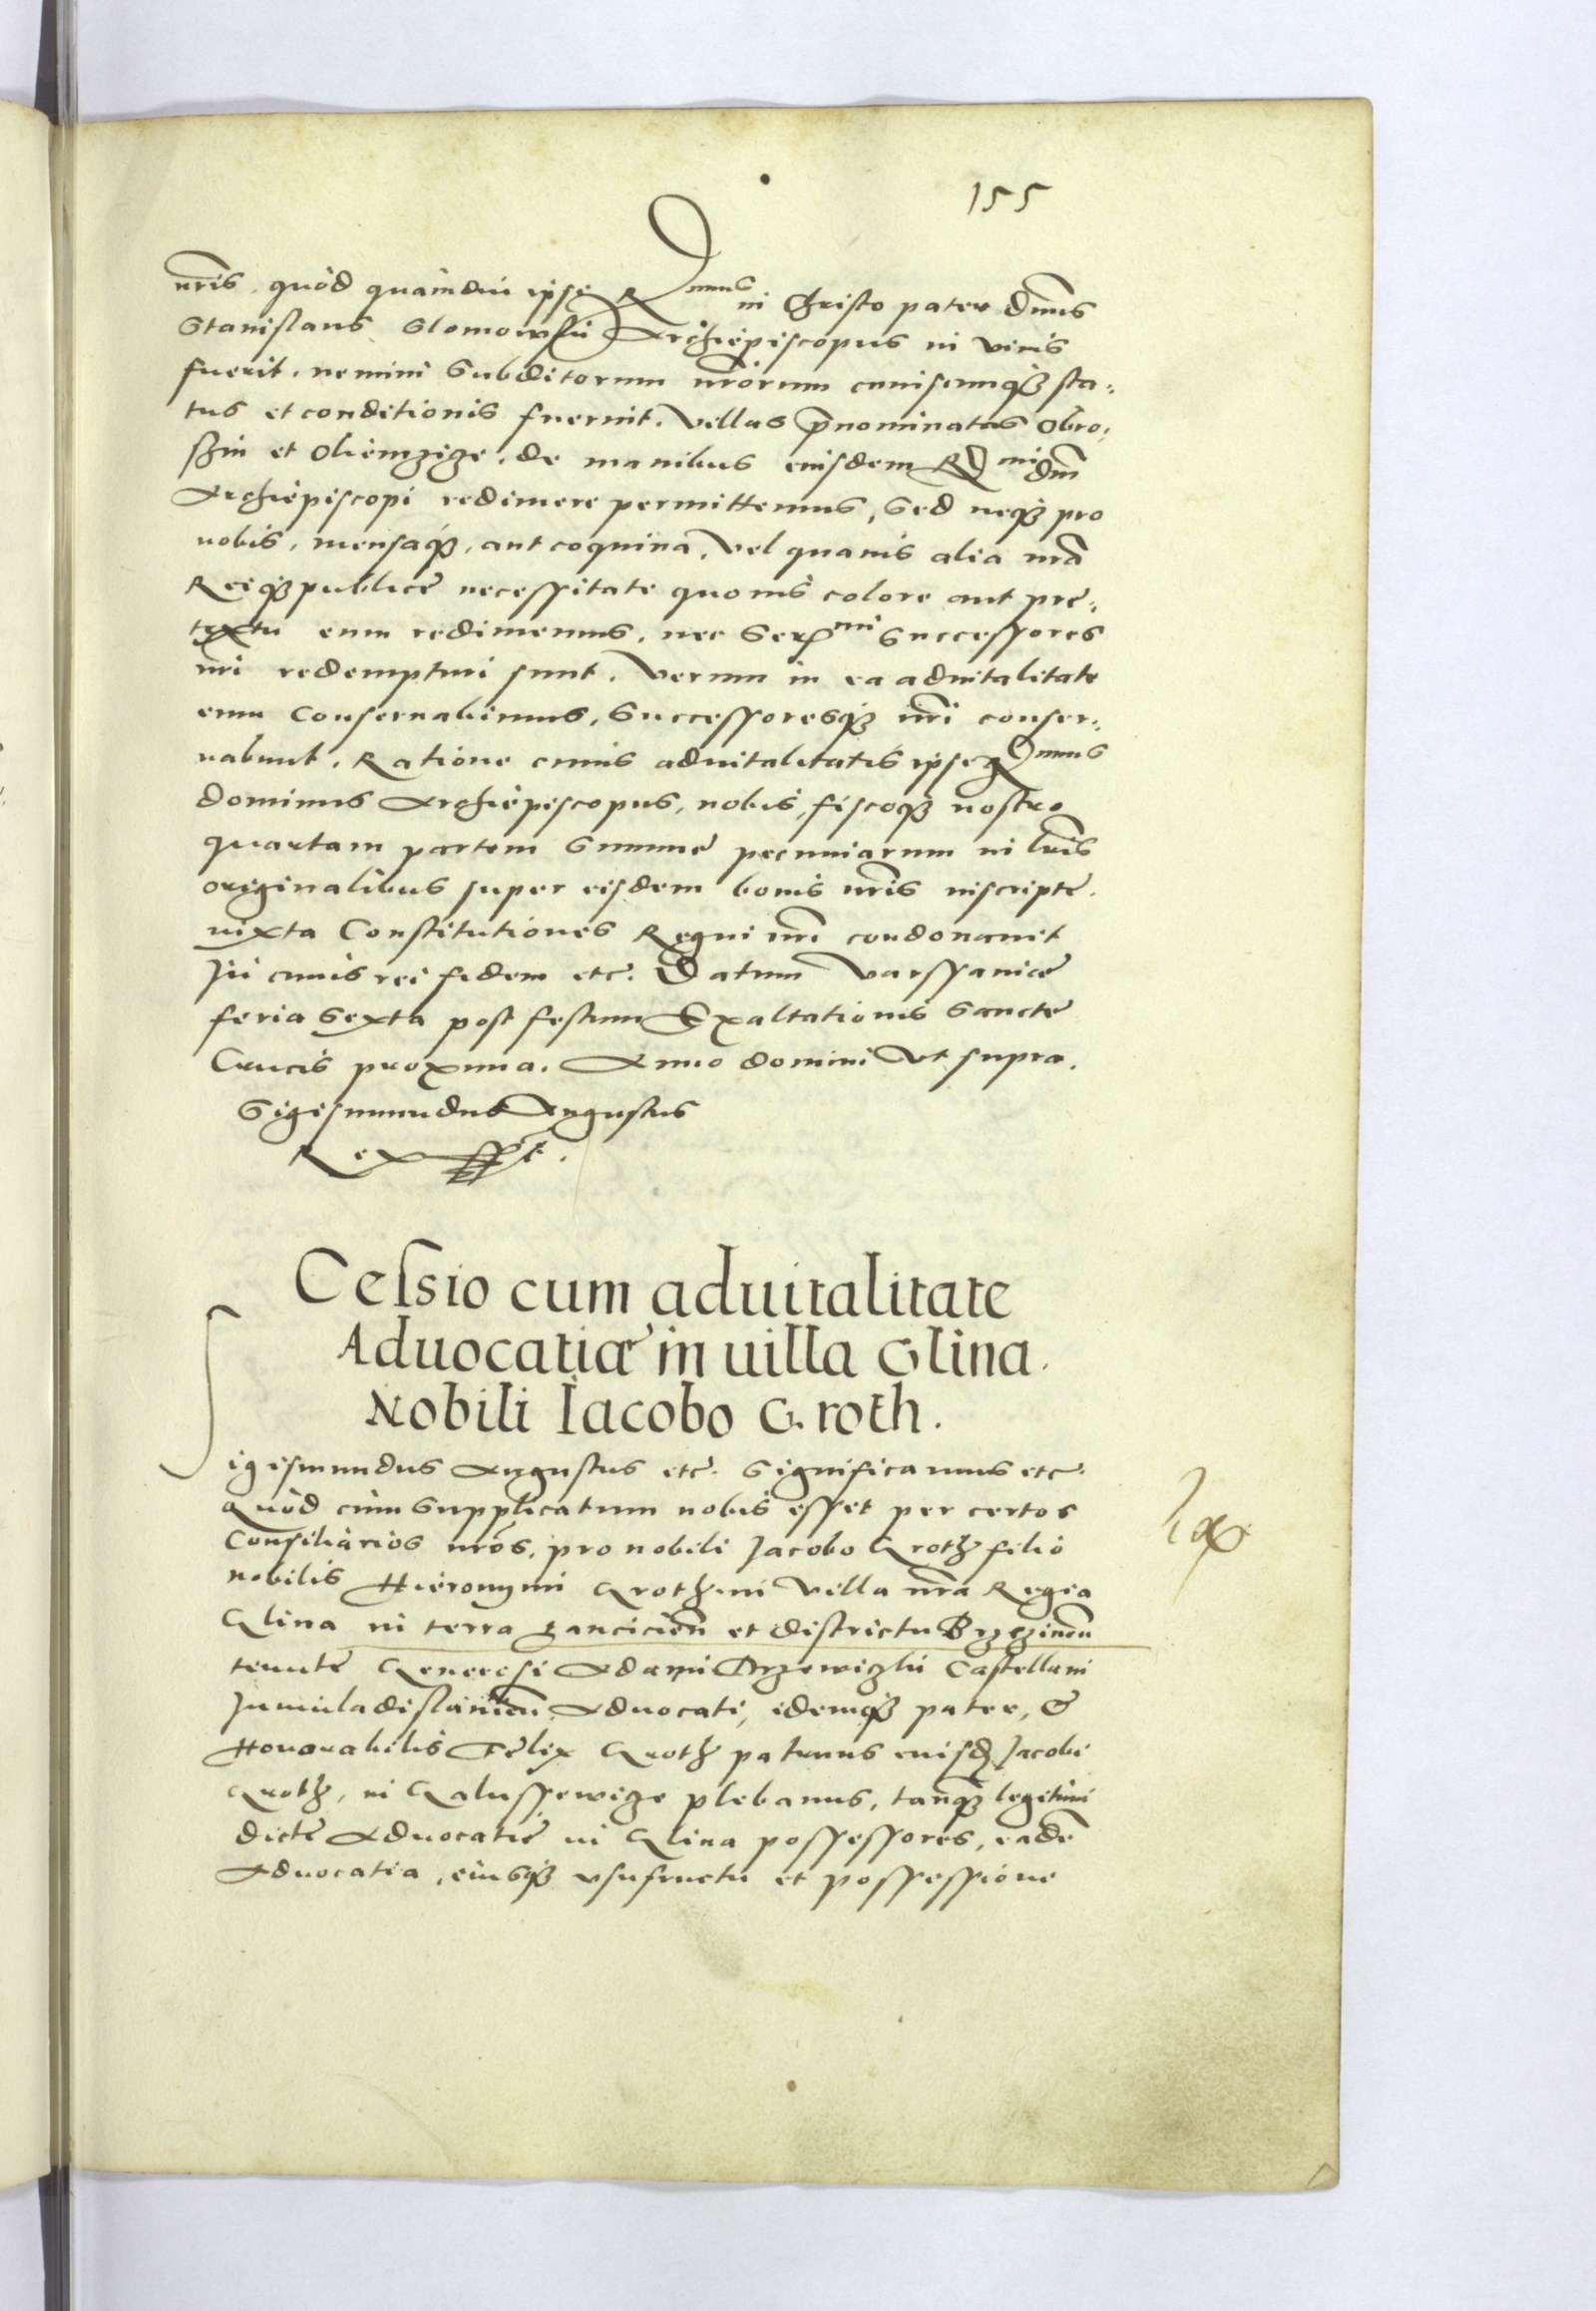 155
nr̃is. quòd quàmdiu ipse Rmus in Christo pater dñus
Stanislaus Slomowski Archiepiscopus in viuis
fuerit. nemini Subditorum nr̃orum cuiuscumq̃ sta:
tus et conditionis fuerint. Villas p̃nominatas Obro:
szin et
Archiepiscopi redimere permittemus, Sed neq̃ pro
nobis, mensaq̃, aut coquina, vel quauis alia nr̃a
Reiq̃ publice necessitate quouis colore aut pre:
textu eum redimemus. nec Sermi Successores
nr̃i redempturi sunt. Verum in ea aduitalitate
eum Conseruabimus, Successoresq̃ nr̃i conser:
uabunt. Ratione cuius aduitalitatis ipse Rmus
dominus Archiepiscopus, nobis, fiscoq̃ nostro
quartam partem Summe pecuniarum in lr̃is
originalibus super eisdem bonis nr̃is inscripte.
iuxta Constitutiones Regni nr̃i condonauit
In cuius rei fidem etc. Datum Varssauiae
feria Sexta post festum Exaltationis Sancte
Crucis proxima. Anno domini Vt supra.
Sigismundus Augustus
Rex sst.
Cessio cum aduitalitate
Aduocatiæ in uilla Glina.
Nobili Iacobo Groth.
Sigismundus Augustus etc. Significamus etc.
Quòd cùm Supplicatum nobis esset per certos
Consiliarios nr̃os, pro nobili Jacobo Groth filio
nobilis Hieronymi Groth in Villa nr̃a Regia
Glina in terra Lancicieñ et districtu Brzezineñ
tenute Generosi Adami Drzewiczki Castellani
Junivladislauieñ Aduocati, idemq̃ pater, &
Honorabilis Felix Groth patruus eiusd Jacobi
Groth, in Galussewize plebanus, tanq̃ legitimi
dicte Aduocatie in Glina possessores, eadẽ
Aduocatia, eiusq̃ vsufructu et possessione